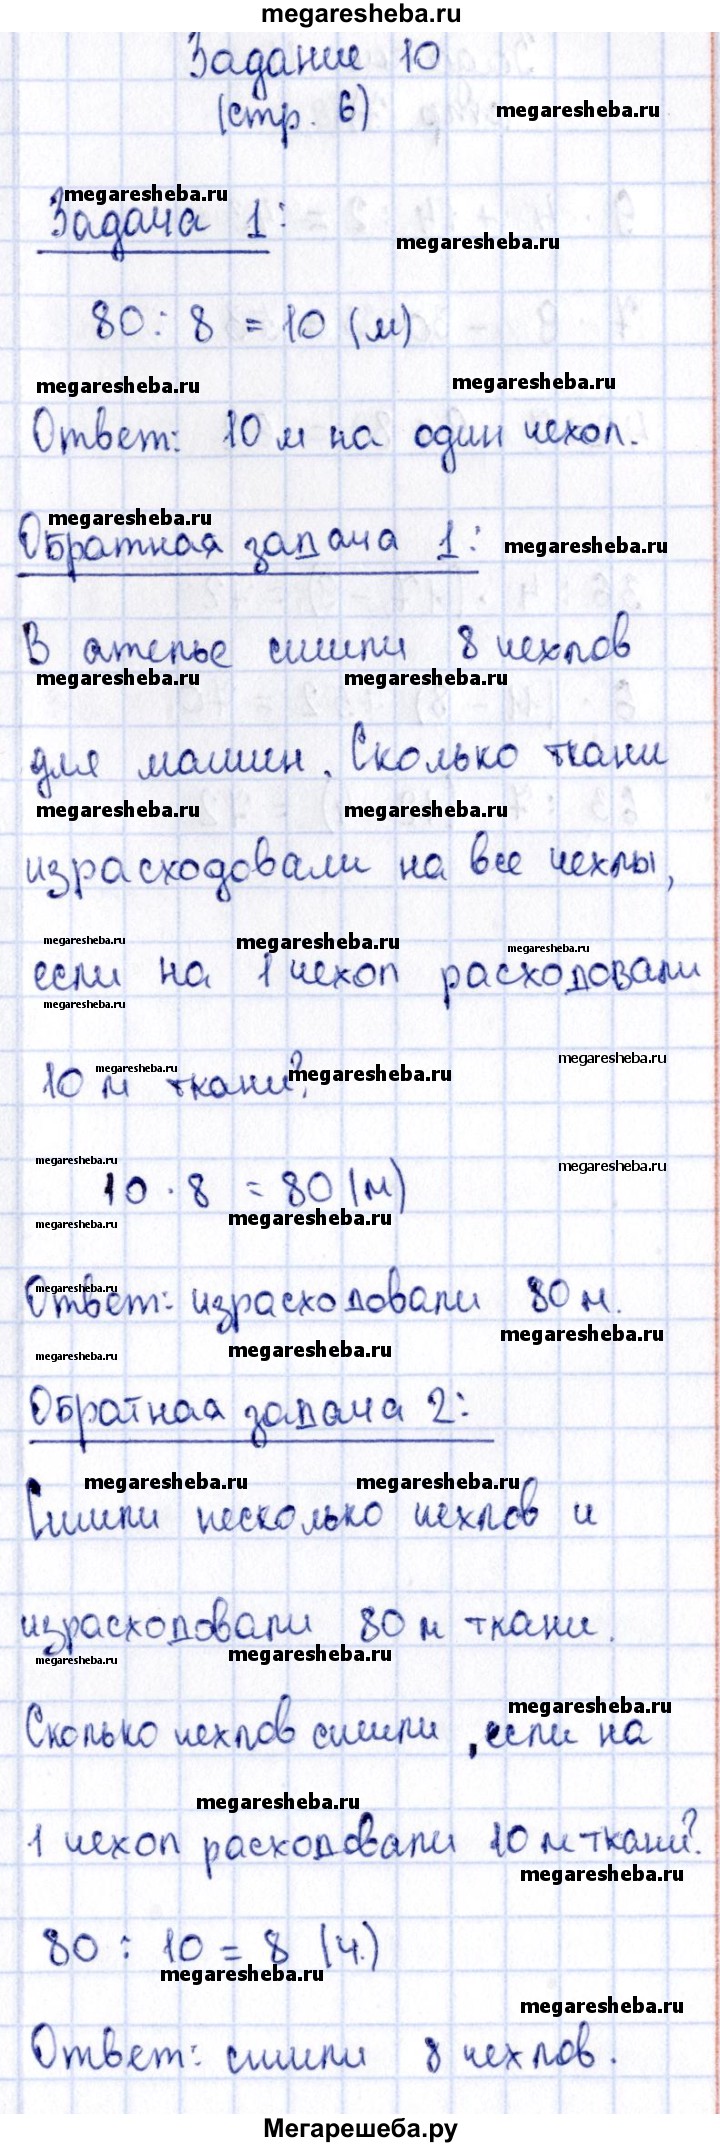 megaresheba.ru
Задание 10
(стр. 6)
megaresheba.ru
megaresheba.ru
Задача 1:
megaresheba.ru
80 : 8 = 10 (м)
megaresheba.ru
megaresheba.ru
Ответ: 10 м на один чехол.
megaresheba.ru
Обратная задача 1:
megaresheba.ru
В ателье сшили 8 чехлов
megaresheba.ru
megaresheba.ru
для машин. Сколько ткани
megaresheba.ru
megaresheba.ru
израсходовали на все чехлы,
megaresheba.ru
megaresheba.ru
megaresheba.ru
если на 1 чехол расходовали
megaresheba.ru
megaresheba.ru
megaresheba.ru
megaresheba.ru
10 м ткани?
megaresheba.ru
megaresheba.ru
10 · 8 = 80 (м)
megaresheba.ru
megaresheba.ru
megaresheba.ru
Ответ: израсходовали 80 м.
megaresheba.ru
megaresheba.ru
megaresheba.ru
Обратная задача 2:
megaresheba.ru
megaresheba.ru
Сшили несколько чехлов и
израсходовали 80 м ткани.
megaresheba.ru
megaresheba.ru
megaresheba.ru
Сколько чехлов сшили, если на
megaresheba.ru
1 чехол расходовали 10 м ткани?
megaresheba.ru
80 : 10 = 8 (ч.)
megaresheba.ru
megaresheba.ru
Ответ: сшили 8 чехлов.
Мегарешеба.ру